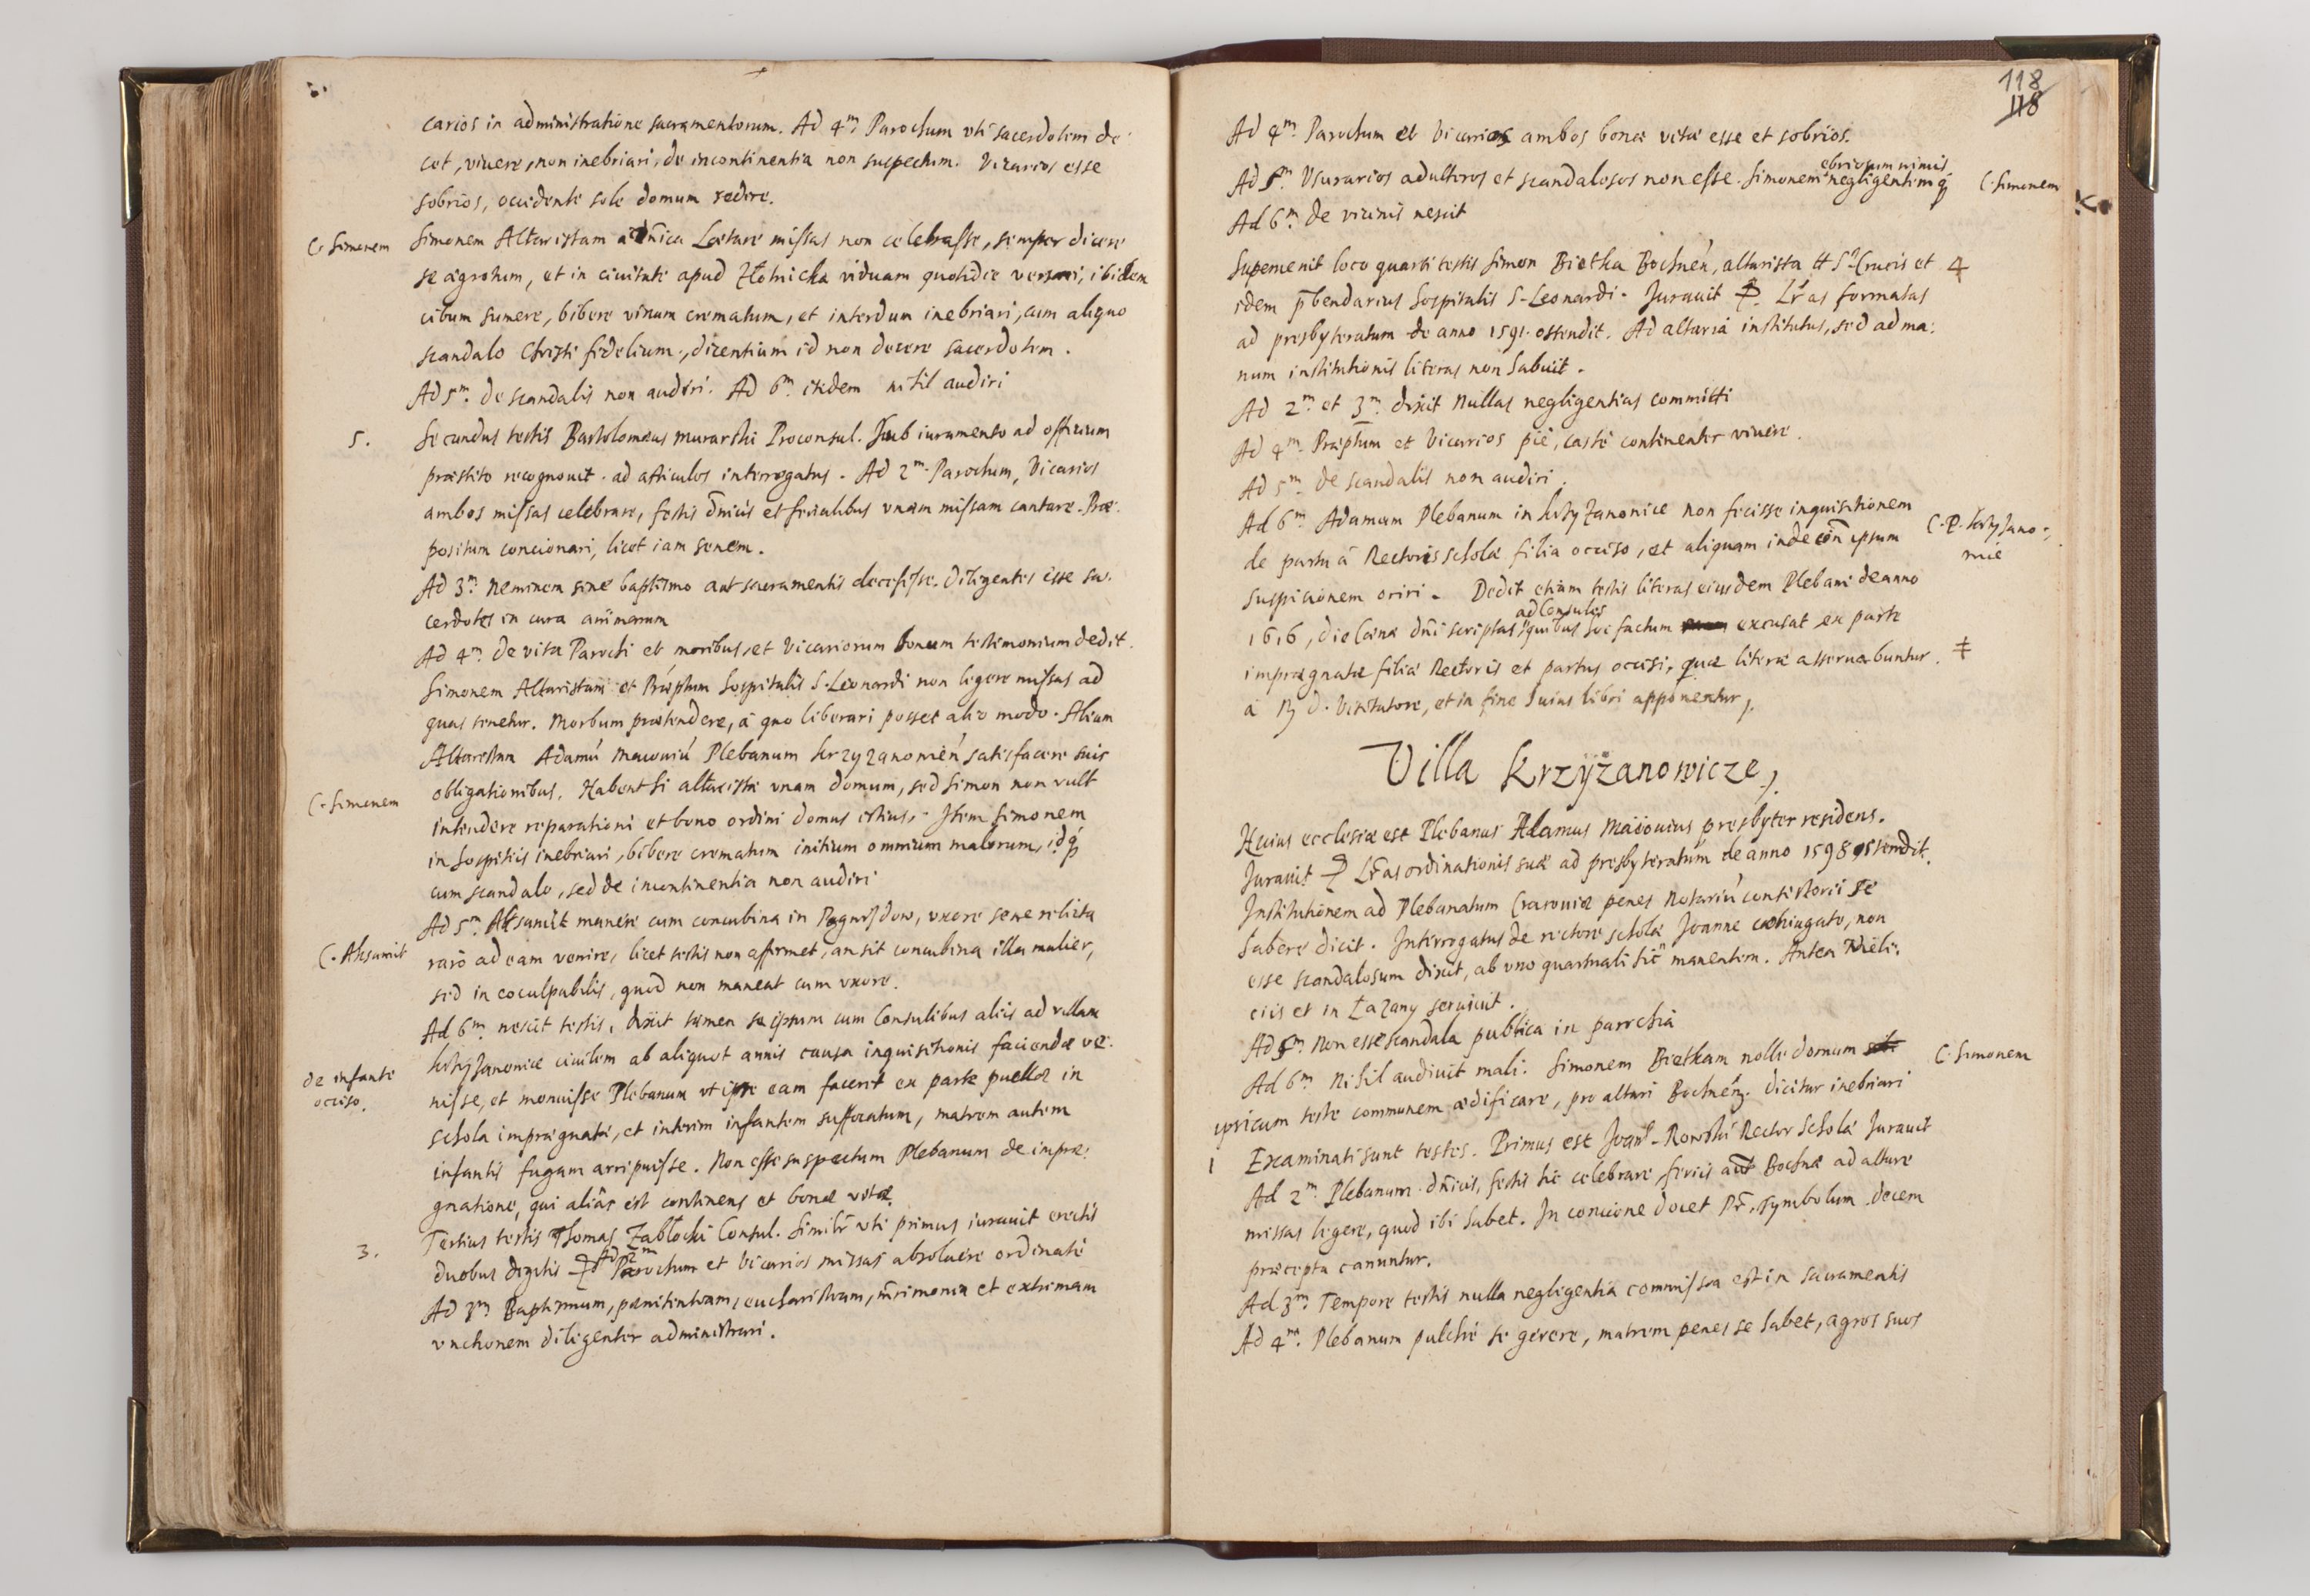 carios in administratione sacramentorum. Ad 4m Parochum vti sacerdotem de
cet, viuere, non inebriari, de incontinentia non suspectum. Vicarios esse
sobrios, occidente sole domum redire.
C. Simonem
Simonem Altaristam a dnica Lætare missas non celebrasse, semper dicere
se ægrotum, et in ciuitate apud Złotnicka viduam quotidie versari, ibidem
cibum sumere, bibere vinum crematum, et interdum inebriari, cum aliquo
scandalo Christi fidelium, dicentium id non decere sacerdotem.
Ad 5m. de scandalis non audiri. Ad 6m. itidem nihil audiri
5.
Secundus testis Bartholomæus Murarski Proconsul. Sub iuramento ad officium
præstito recognouit. ad articulos interrogatus. Ad 2m. Parochum, Vicarios
ambos missas celebrare, festis dnicis et ferialibus vnam missam cantare. Præ:
positum concionari, licet iam senem.
Ad 3m. Neminem sine baptismo aut sacramentis decessisse. Diligentes esse sa:
cerdotes in cura animarum
Ad 4m. De vita Parochi et moribus, et Vicariorum bonum testimonium dedit.
Simonem Altaristam et Præptum hospitalis S. Leonardi non legere missas ad
quas tenetur. Morbum prætendere, à quo liberari posset alio modo. Alium
Altaristam Adamu Maiouiu Plebanum Krzyzanowien satisfacere suis
C. Simonem
obligationibus. Habent hi altaristæ vnam domum, sed Simon non vult
intendere reparationi et bono ordini domus istius. Item Simonem
in hospitiis inebriari, bibere crematum initium omnium malorum, idq
cum scandalo, sed de incontinentia non audiri
C. Aksamit
Ad 5m. Aksamit manere cum concubina in, vxore sene relicta
raro ad eam venire, licet testis non affirmet, an sit concubina illa mulier,
sed in eo culpabilis, quod non maneat cum vxore.
Ad 6m. nescit testis, dixit tamen se ipsum cum Consulibus aliis ad villam
de infante
occiso.
Krzyżanowice ciuilem ab aliquot annis causa inquisitionis faciendæ ve:
nisse, et monuisse Plebanum vt ipse eam faceret ex parte puellæ in
schola imprægnatæ, et interim infantem suffocatum, matrem autem
infantis fugam arripuisse. Non esse suspectum Plebanum de impræ:
gnatione, qui aliàs est continens et bonæ vitæ.
3.
Tertius testis Thomas Zabłocki Consul. Similr vti primus iurauit erectis
duobus digitis Ad 2m Parochum et Vicarios missas absoluere ordinatè
Ad 3m Baptismum, pænitentiam, eucharistiam, mrimonia et extremam
vnctionem diligenter administrari.
118
118
Ad 4m. Parochum et Vicarios ambos bonæ vitæ esse et sobrios.
ebriosum nimis
Ad 5m. Vsurarios adulteros et scandalosos non esse. Simonem negligentemq
C. Simonem
Ad 6m. de vicinis nescit
Superuenit loco quarti testis Simon Bietka Bochnen, altarista tt S. Crucis et
4
idem pbendarius hospitalis S. Leonardi. Jurauit Lras formatas
ad presbyteratum de anno 1591. ostendit. Ad altaria institutus, sed ad ma:
num institutionis literas non habuit.
Ad 2m. et 3m. dixit nullas negligentias committi
Ad 4m. Præptum et Vicarios pie, castè continenter viuere.
Ad 5m. de scandalis non audiri.
Ad 6m. Adamum Plebanum in Krzyżanowice non fecisse inquisitionem
C. P. Krzyżano:
wic
de partu à Rectoris scholæ filia occiso, et aliquam inde con ipsum
suspicionem oriri. Dedit etiam testis literas eiusdem Plebani de anno
ad Consules
1616, die Cænæ dni scriptas quibus hoc factum excusat ex parte
imprægnatæ filiæ Rectoris et partus occisi, quæ literæ asseruabuntur.
a R D. Visitatore, et in fine huius libri apponentur.
Villa Krzyżanowicze.
Huius ecclesiæ est Plebanus Adamus Maiouius presbyter residens.
Jurauit Lras ordinationis suæ ad presbyteratum de anno 1598 ostendit.
Institutionem ad Plebanatum Cracouiæ penes Notariu consistorii se
habere dicit. Interrogatus de rectore scholæ Joanne coniugato, non
esse scandalosum dixit, ab vno quartuali hic manentem. Antea Wieli:
ciis et in Łazany seruiuit.
Ad 5m. Non esse scandala publica in parochia
Ad 6m. Nihil audiuit mali. Simonem Bietkam nolle domum
C. Simonem
vnicum teste communem ædificare, pro altari Bochnen. dicitur inebriari
1
Examinati sunt testes. Primus est Joanes Rector scholæ Jurauit
Ad 2m. Plebanum dnicis, festis hic celebrare feriis aut Bochnæ ad altare
missas legere, quod ibi habet. In concione docet Pr, Symbolum decem
præcepta canuntur.
Ad 3m. Tempore testis nulla negligentia commissa est in sacramentis
Ad 4m. Plebanum pulchrè se gerere, matrem penes se habet, agros suos